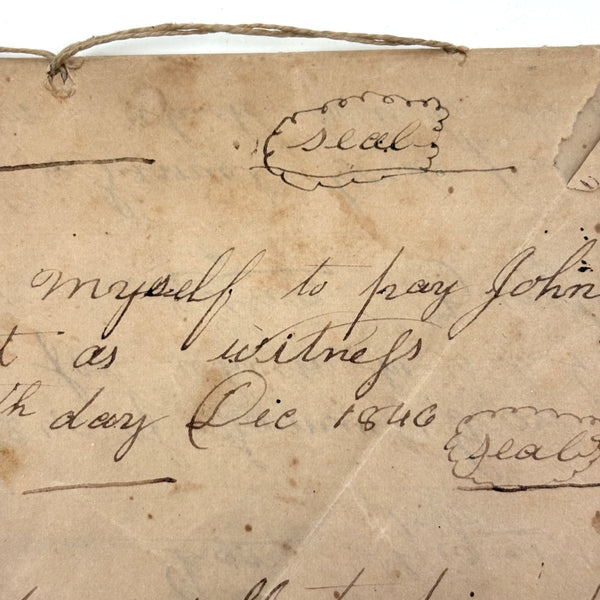 seal
myself to pay John
t as witness
th day Dec 1846
seal